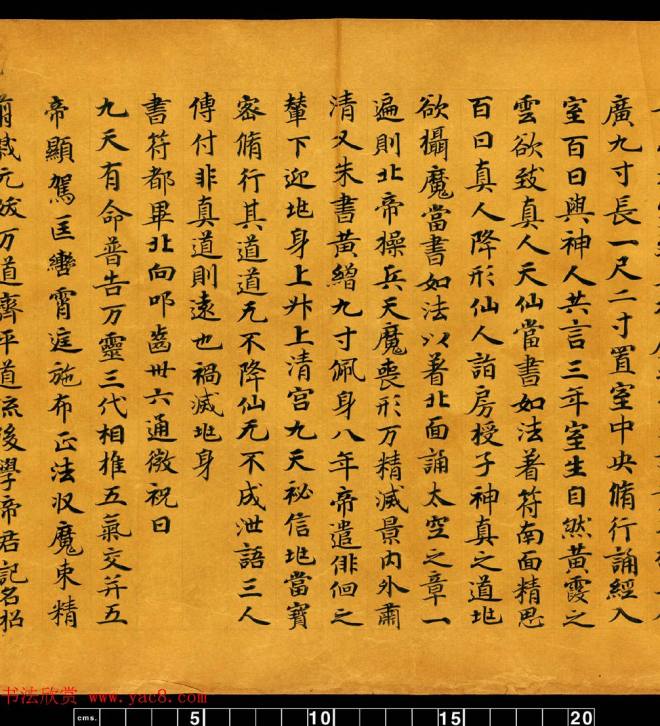 廣九寸長一尺二寸置室中央脩行誦經入
室百日與神人共言三年室生自然黃霞之
雲欲致真人天仙當書如法著符南面精思
百日真人降形仙人詣房授子神真之道垗
欲攝魔當書如法以著北面誦太空之章一
遍則北帝操兵天魔喪形万精滅景內外肅
清又朱書黃繒九寸佩身八年帝遣俳佪之
輦下迎垗身上升上清宮九天祕信垗當寶
密脩行其道道无不降仙无不成泄語三人
傳付非真道則遠也禍滅垗身
書符都畢北向叩齒卅六通微祝曰
九天有命普告万靈三代相推五氣交并五
帝顯駕匡轡霄庭施布正法收魔束精
万道齊平道流後學帝君記名招
书法欣赏 www.yac8.com
cms. 5 10 15 20